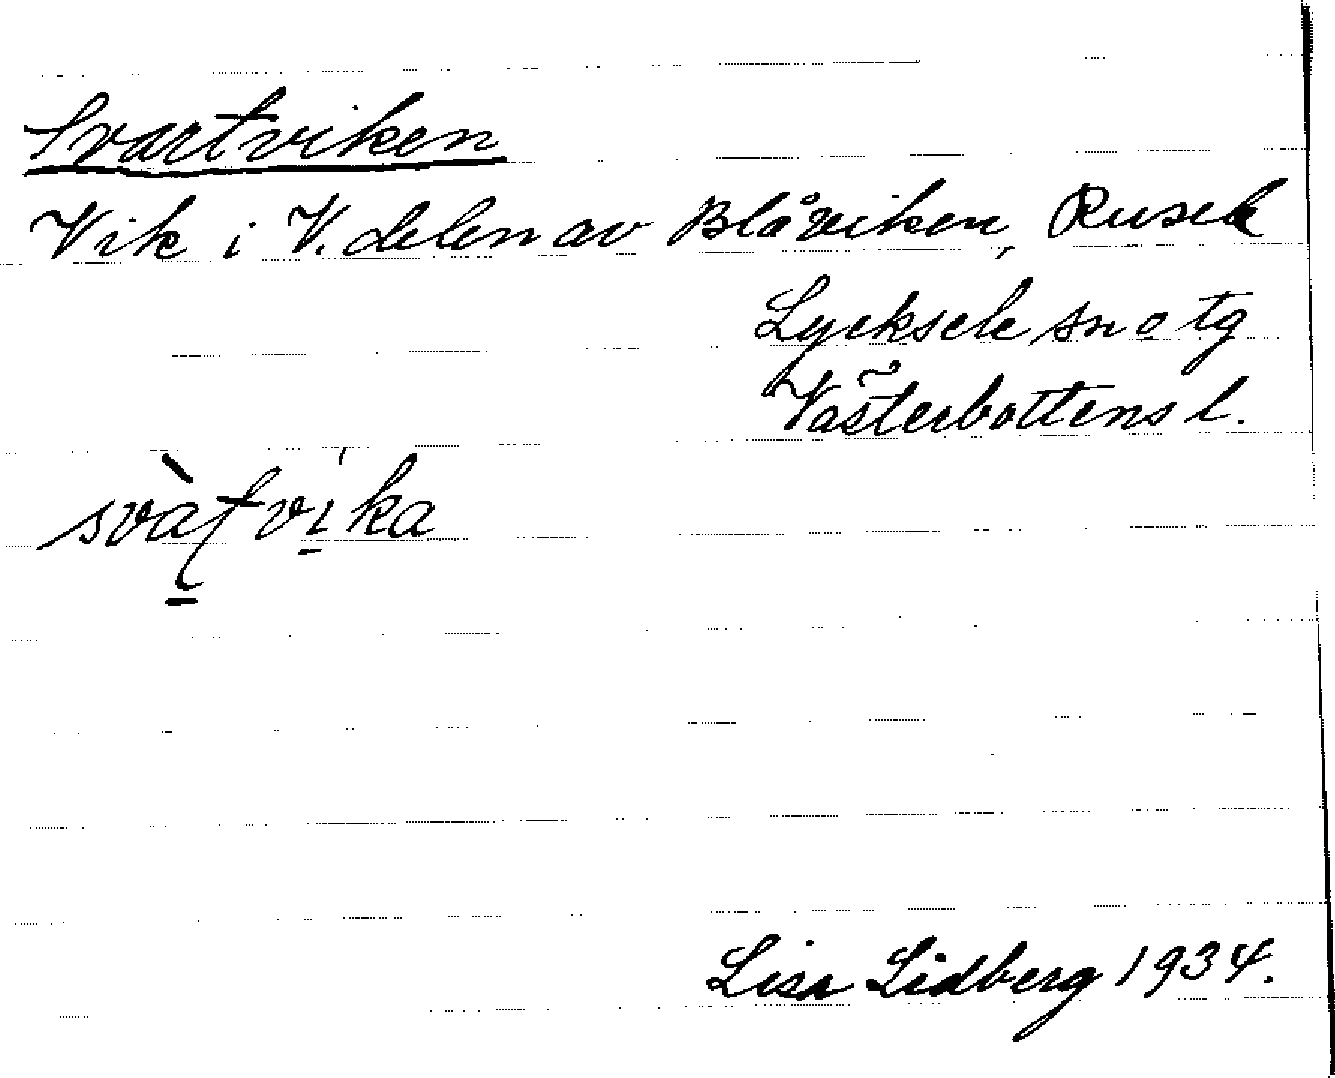 Svartviken
Vik i V. delen av Blåviken, Rusele
Lycksele sn o tg
Västerbottens l.
svàtvi̱ka
Lisa Lidberg 1934.